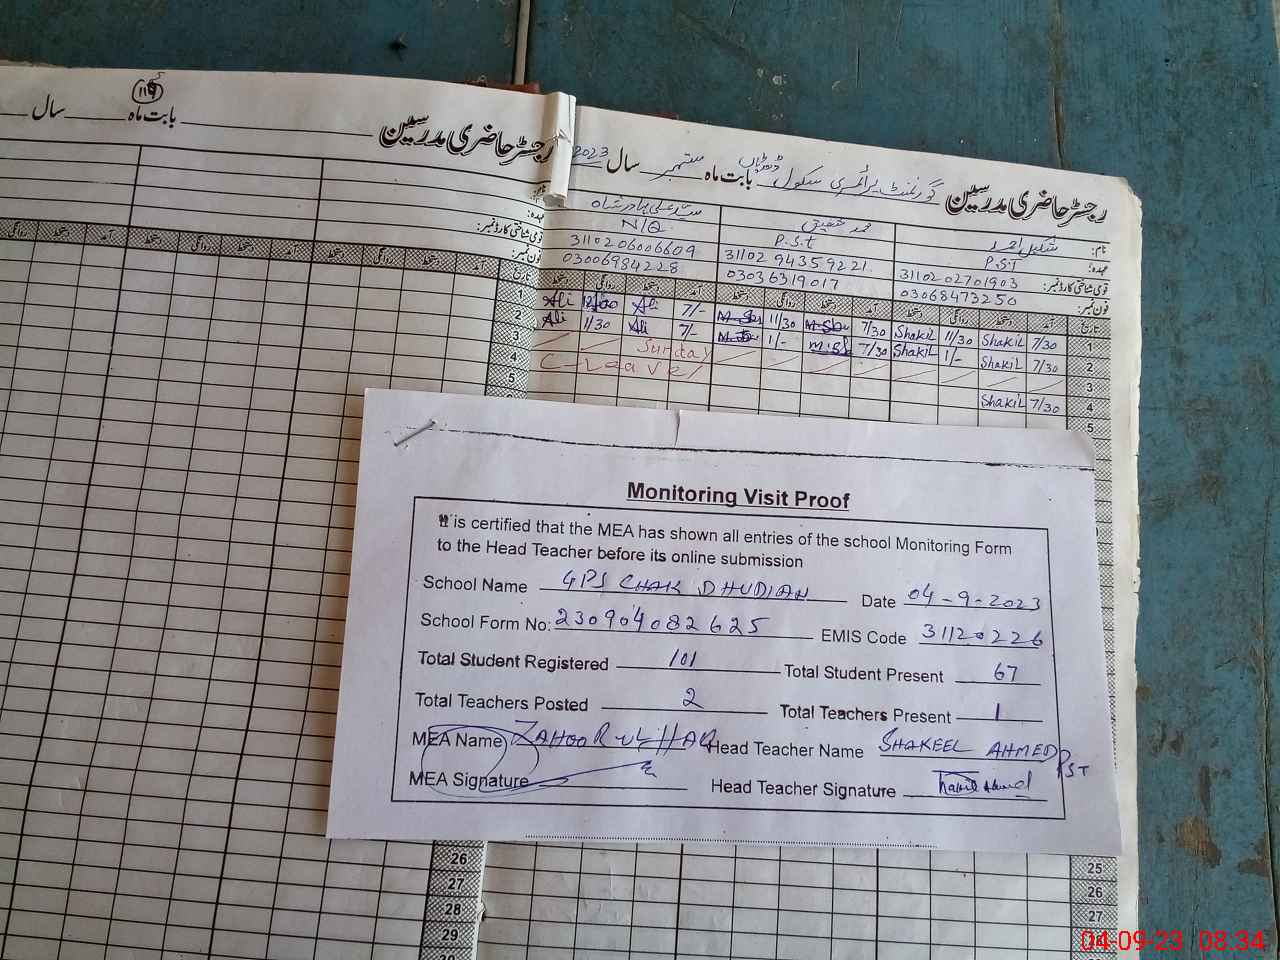 ۱۱۹
رجسٹر حاضری مدرسین بابت ماہ سال
رجسٹر حاضری مدرسین گورنمنٹ پرائمری سکول بابت ماہ ستمبر سال 2023
نام: شکیل احمد
عہدہ: P.S.T P.S.t N/Q
قومی شناختی کارڈ نمبر: 31102 02701903 31102 94359221 3110206006609
فون نمبر: 03068473250 03036319017 03006984228
تاریخ آمد دستخط روانگی دستخط آمد دستخط روانگی دستخط آمد دستخط روانگی دستخط
1 7/30 Shakil 11/30 Shakil 7/30 11/30 7/- Ali Ali 1
2 7/30 Shakil 1/- Shakil 7/30 1/- 7/- Ali 11/30 Ali 2
3 Sunday 3
4 7/30 Shakil C-Leave 4
5 5
Monitoring Visit Proof
It is certified that the MEA has shown all entries of the school Monitoring Form
to the Head Teacher before its online submission
School Name GPS CHAK DHUDIAN Date 04-9-2023
School Form No: 230904082625 EMIS Code 31120226
Total Student Registered 101 Total Student Present 67
Total Teachers Posted 2 Total Teachers Present 1
MEA Name ZAHOOR UL HAQ Head Teacher Name SHAKEEL AHMED PST
MEA Signature Head Teacher Signature
26 25
27 26
28 27
29
04-09-23 08:34